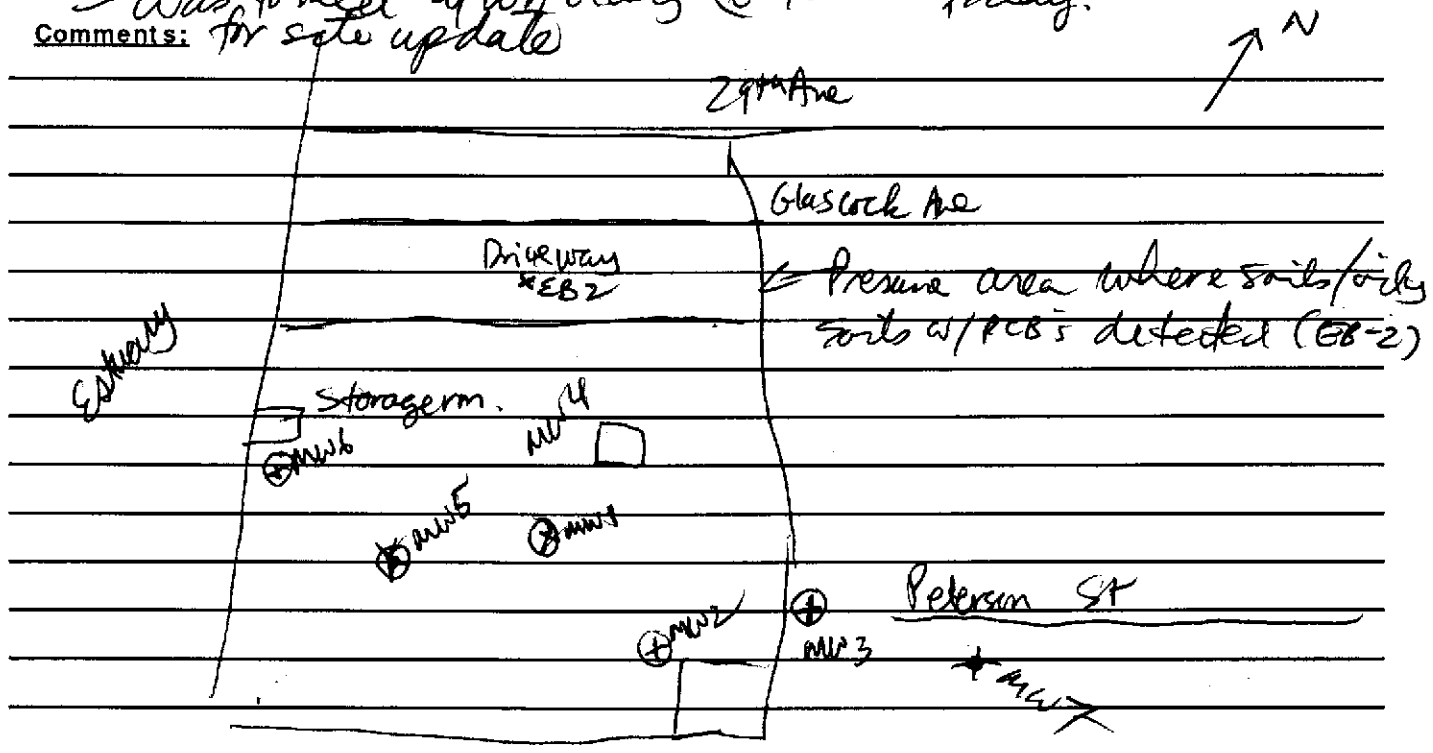 Was to meet @ today.
Comments: for site update
N
29th Ave
Glascock Ave
Driveway
*EB2
Presume area where soils/oily
soils w/PCB's detected (EB-2)
Estuary
Storagerm.
MW4
MW6
MW5
MW1
Peterson St
MW2
MW3
MW7